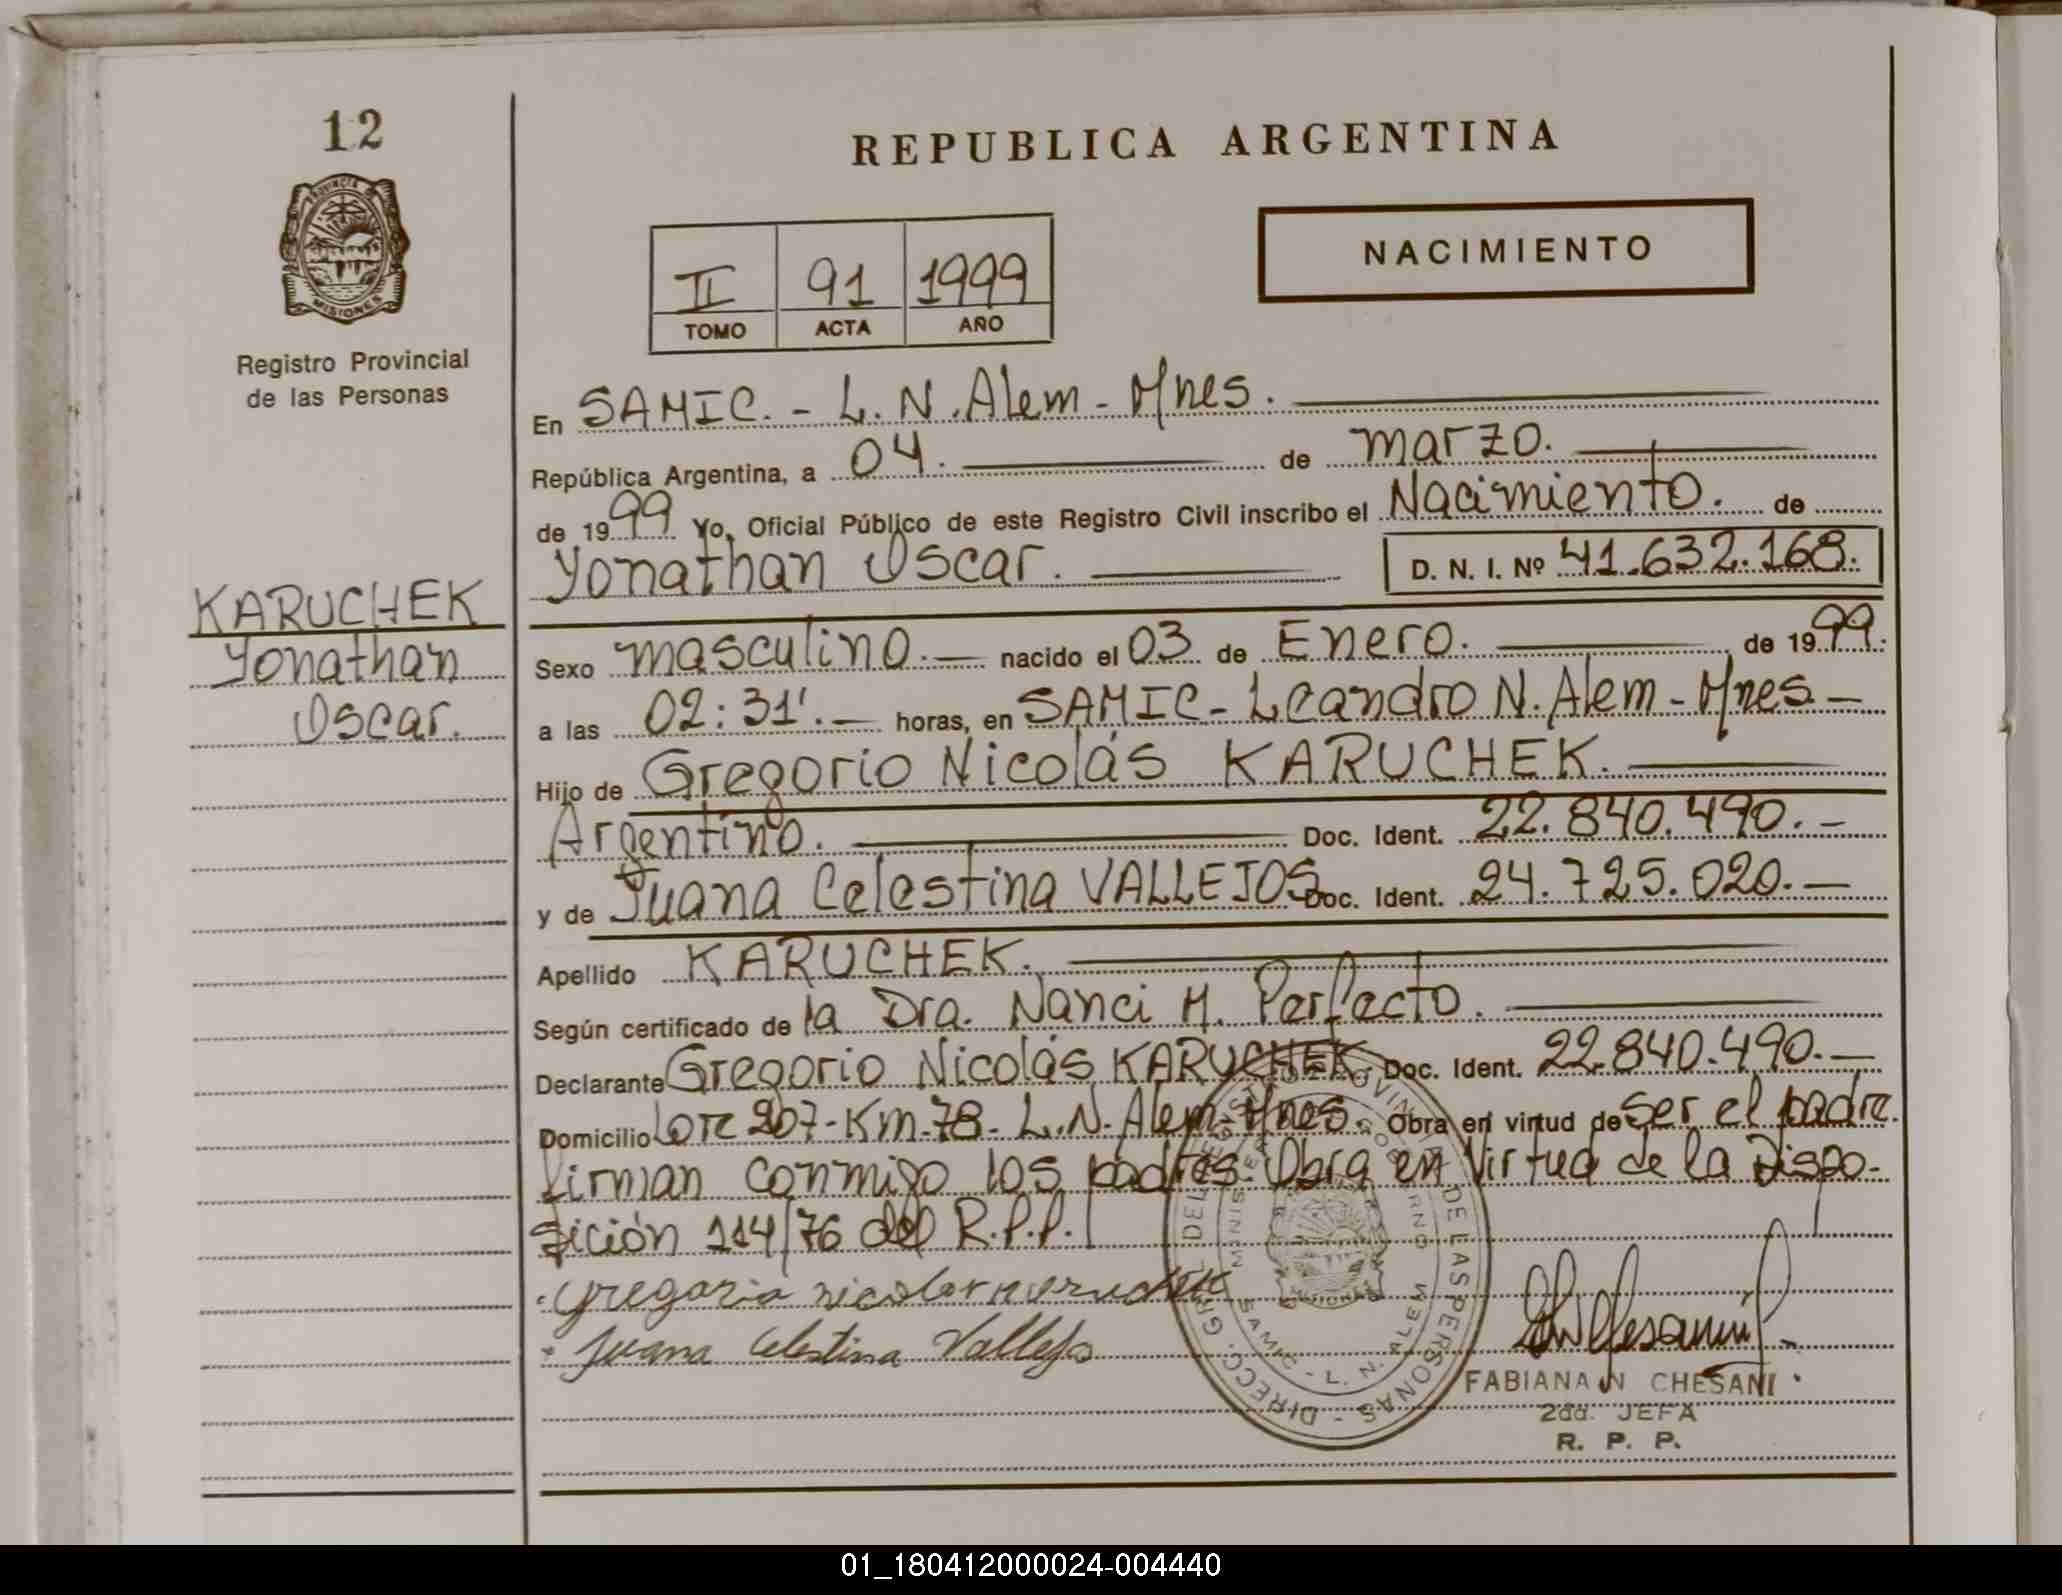 12
REPUBLICA ARGENTINA
PROVINCIA DE
MISIONES
NACIMIENTO
II 91 1999
TOMO ACTA AÑO
Registro Provincial
de las Personas
En SAMIC. - L. N. Alem - Mnes.
República Argentina, a 04. de marzo.
de 1999 Yo, Oficial Público de este Registro Civil inscribo el Nacimiento. de
Yonathan Oscar. D. N. I. Nº 41.632.168.
KARUCHEK
Yonathan
Oscar.
Sexo masculino. nacido el 03 de Enero. de 1999.
a las 02:31'. horas, en SAMIC - Leandro N. Alem - Mnes -
Hijo de Gregorio Nicolás KARUCHEK.
Argentino. Doc. Ident. 22.840.490. -
y de Juana Celestina VALLEJOS Doc. Ident. 24.725.020. -
Apellido KARUCHEK.
Según certificado de la Dra. Nanci M. Perfecto.
Declarante Gregorio Nicolás KARUCHEK Doc. Ident. 22.840.490. -
Domicilio Lote 207 - Km. 78 - L. N. Alem - Mnes. Obra en virtud de ser el padre.
Firman conmigo los padres. Obra en Virtud de la Dispo-
sición 114/76 del R.P.P.
Gregorio Nicolas Karuchek
Juana Celestina Vallejo
DIRECC. GRL. DEL REGISTRO PROVINCIAL DE LAS PERSONAS
MINISTERIO GOBIERNO
MISIONES
SAMIC - L. N. ALEM
FABIANA N CHESANI
2da. JEFA
R. P. P.
01_180412000024-004440